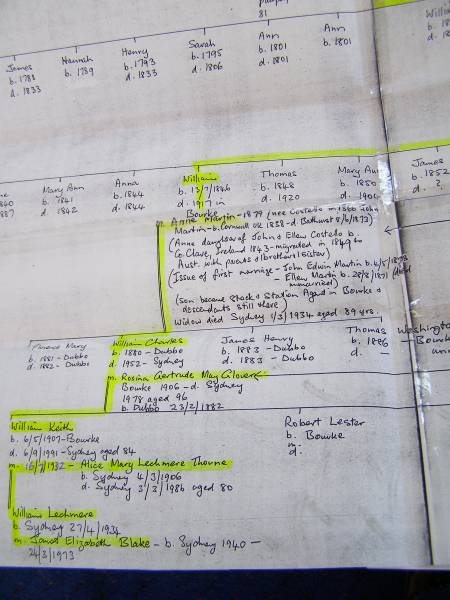 81
James
b. 1788
d. 1833
Hannah
b. 1789
Henry
b. 1793
d. 1833
Sarah
b. 1795
d. 1806
Ann
b. 1801
d. 1801
Ann
b. 1801
Mary Ann
b. 1841
d. 1842
Anna
b. 1844
d. 1844
William
b. 13/7/1846
d. 1917 in
Bourke
Thomas
b. 1848
d. 1920
Mary Ann
b. 1850
James
b. 1852
d. ?
m. Anne Martin - 1879 (nee Costello m 1866 John
Martin - b. Cornwall UK 1838 - d. Bathurst 8/6/1873)
(Anne daughter of John & Ellen Costello b.
Co. Clare, Ireland 1843 - migrated in 1849 to
Aust. with parents & brother & sister)
(Issue of first marriage - John Edwin Martin b. 4/5/1873
- Ellen Martin b. 28/8/1871
unmarried)
(son became Stock & Station Agent in Bourke &
descendants still there)
Widow died Sydney 1/3/1934 aged 89 yrs.
Mary
b. 1881 - Dubbo
d. 1882 - Dubbo
William Charles
b. 1880 - Dubbo
d. 1952 - Sydney
James Henry
b. 1883 - Dubbo
d. 1883 - Dubbo
Thomas
b. 1886
d. -
Washington
- Bourke
m. Rosina Gertrude May Glover
Bourke 1906 - d. Sydney
1978 aged 96
b. Dubbo 23/2/1882
William Keith
b. 6/5/1907 - Bourke
d. 6/9/1991 - Sydney aged 84
m. 16/7/1932 - Alice Mary Lechmere Thorne
b. Sydney 4/3/1906
d. Sydney 3/3/1986 aged 80
Robert Lester
b. Bourke
m.
d.
William Lechmere
b. Sydney 27/4/1934
m. Janet Elizabeth Blake - b. Sydney 1940 -
24/3/1973